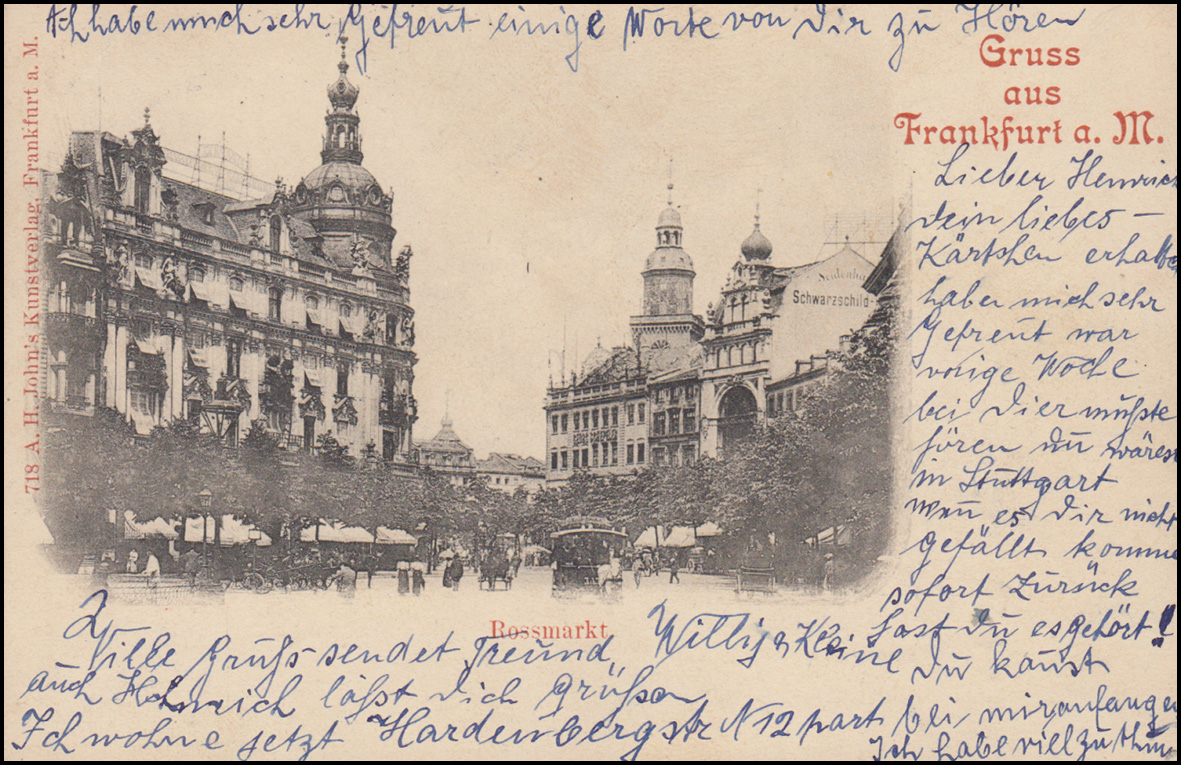 Ach habe mich sehr Gefreut einige Worte von Dir zu Hören
Gruss
aus
Frankfurt a. M.
718 A. H. John's Kunstverlag, Frankfurt a. M.
Lieber Henrich
dein liebes –
Kärtshen erhalte
haber mich sehr
Gefreut war
vorige Woche
bei Dier mußte
hören du wärest
in Stuttgart
wen es Dir nicht
gefällt komme
sofort Zurück
hast du es gehört!
du kanst
bei mir anfangen
Ich habe vill zu thun
Schwarzschild-
Rossmarkt
Ville Grußs sendet Freund, Willig, Kleine
auch Heinrich läßt dich Grüßen
Ich wohne jetzt Hardenbergstr N 12 part